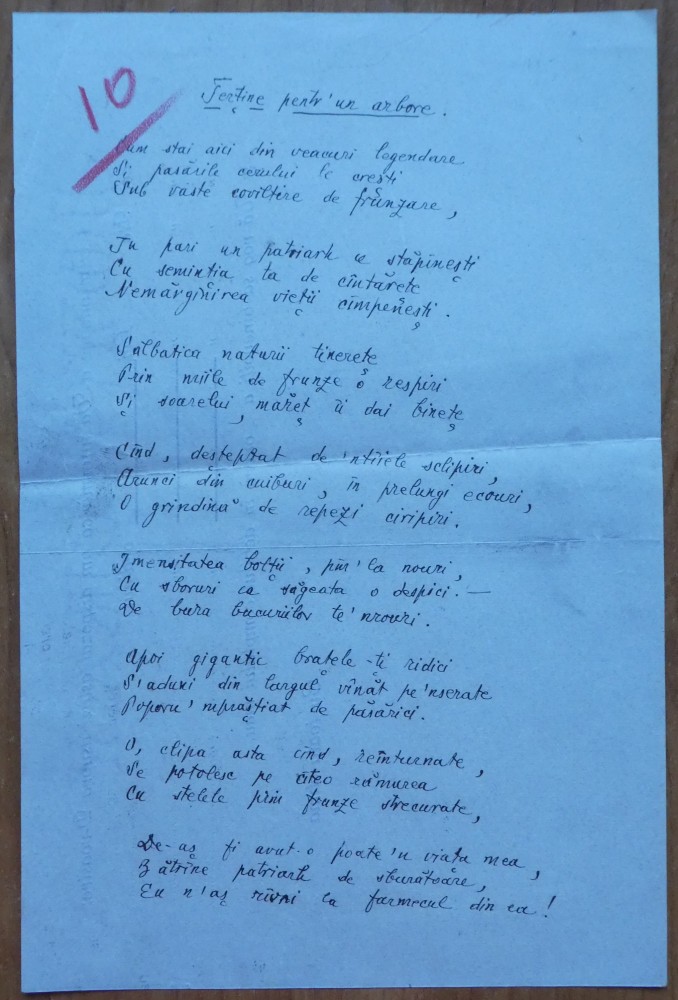 10
Terține pentr'un arbore.
Cum stai aici din veacuri legendare
Și pasările cerului le crești
Sub vaste coviltire de frunzare,
Tu pari un patriarh ce stăpînești
Cu seminția ta de cîntărețe
Nemărginirea vieții cîmpenești.
Sălbatica naturii tinerețe
Prin miile de frunze o respiri
Și soarelui, măreț îi dai binețe
Cînd, deșteptat de 'ntîiele sclipiri,
Arunci din cuiburi, în prelungi ecouri,
O grindină de repezi ciripiri.
Imensitatea bolții, pîn' la nouri,
Cu sboruri ca săgeata o despici. —
De bura bucuriilor te 'nrouri.
Apoi gigantic brațele-ți ridici
S'aduni din largul vînăt pe 'nserate
Poporu' 'mprăștiat de păsărici.
O, clipa asta cînd, reînturnate,
Se potolesc pe cîteo rămurea
Cu stelele prin frunze strecurate,
De-aș fi avut-o poate 'n viața mea,
Bătrîne patriarh de sburătoare,
Eu n'aș rîvni la farmecul din ea!